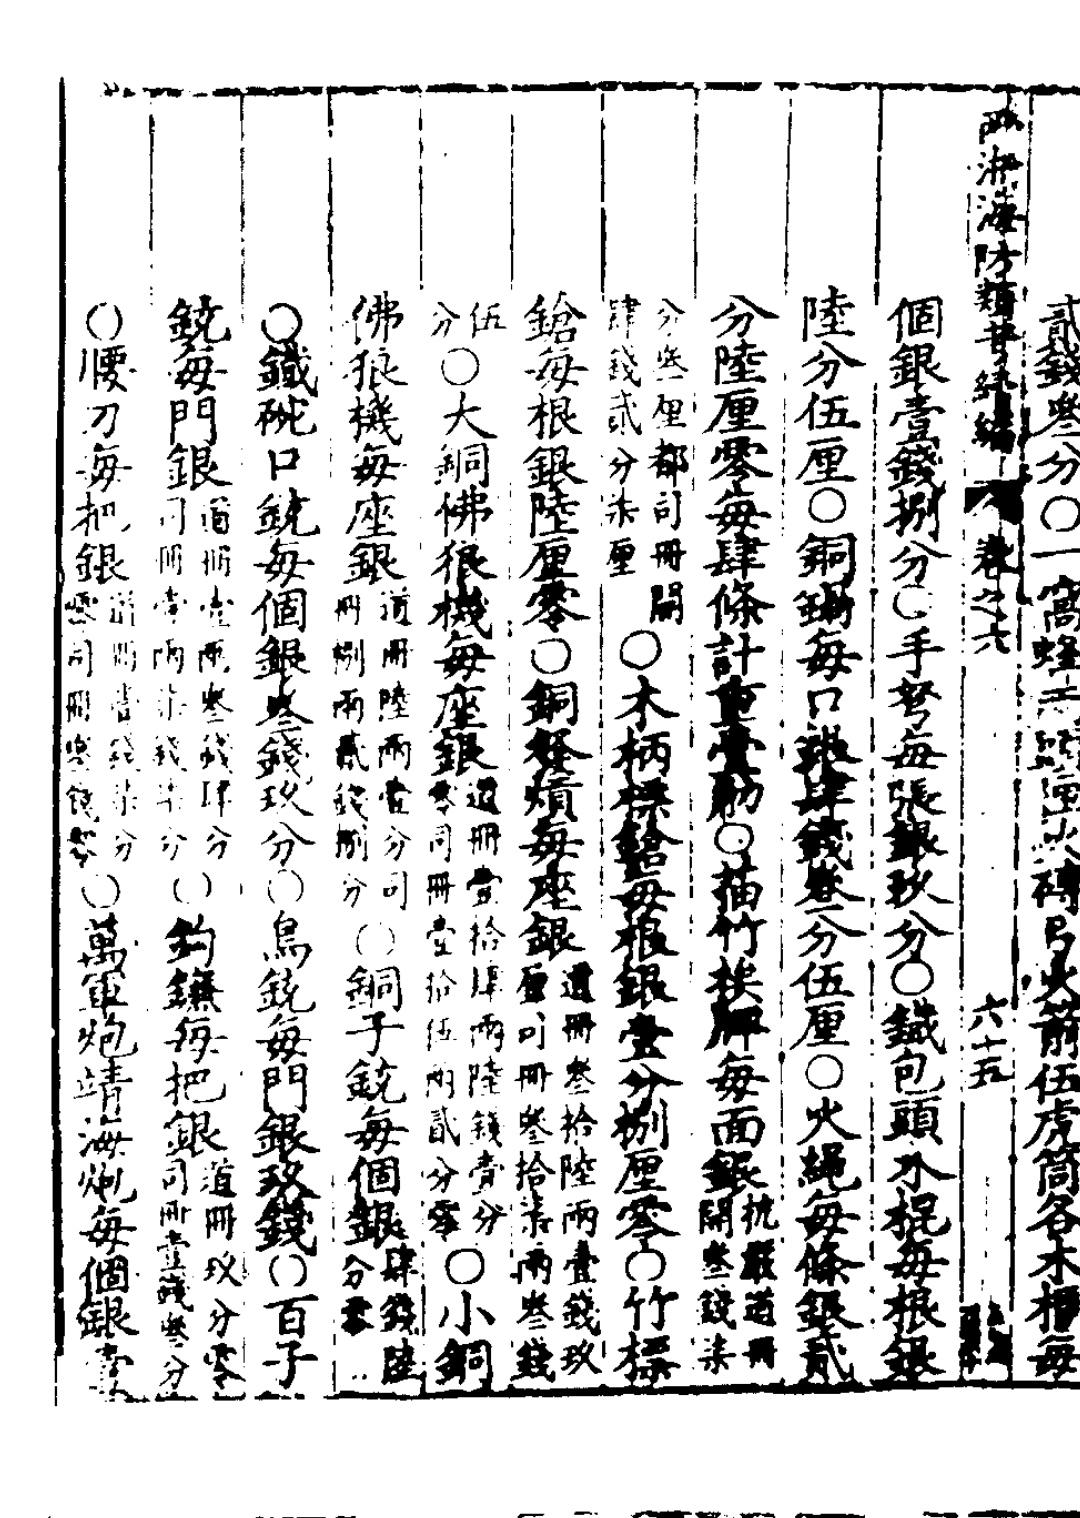 貳錢叁分〇一窩蜂火箭伍虎筒各木櫃每
兩浙海防類考續編 卷之六 六十五
個銀壹錢捌分〇手弩每張銀玖分〇鐵包頭水棍每根銀
陸分伍厘〇銅鍋每口銀肆錢叁分伍厘〇火繩每條銀貳
分陸厘零每肆條計重壹觔〇描竹挨牌每面銀杭嚴道冊開叁錢柒
分叁厘都司冊開肆錢貳分柒厘〇木柄標鎗每根銀壹分捌厘零〇竹標
鎗每根銀陸厘零〇銅發熕每座銀道冊叁拾陸兩壹錢玖厘司冊叁拾柒兩叁錢
伍分〇大銅佛狼機每座銀道冊壹拾肆兩陸錢壹分零司冊壹拾伍兩貳分零〇小銅
佛狼機每座銀道冊陸兩壹分司冊捌兩貳錢捌分〇銅子銃每個銀肆錢陸分零
〇鐵碗口銃每個銀叁錢玖分〇鳥銃每門銀玖錢〇百子
銃每門銀道冊壹兩叁錢肆分司冊壹兩柒錢柒分〇鈎鐮每把銀道冊玖分零司冊壹錢叁分
〇腰刀每把銀道冊壹錢柒分零司冊叁錢零〇萬軍炮靖海炮每個銀壹